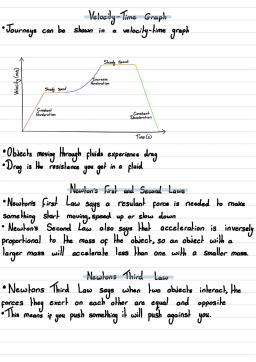 Velocity-Time Graph
• Journeys can be shown in a velocity-time graph
Velocity (m/s)
Steady Speed
Steady Speed
Increase
Acceleration
Constant
Acceleration
Constant
Deceleration
Time (s)
• Objects moving through fluids experience drag
• Drag is the resistance you get in a fluid
Newton's First and Second Laws
• Newton's First Law says a resultant force is needed to make
something start moving, speed up or slow down
• Newton's Second Law also says that acceleration is inversely
proportional to the mass of the object, so an object with a
larger mass will accelerate less than one with a smaller mass.
Newtons Third Law
• Newtons Third Law says when two objects interact, the
forces they exert on each other are equal and opposite
• This means if you push something it will push against you.